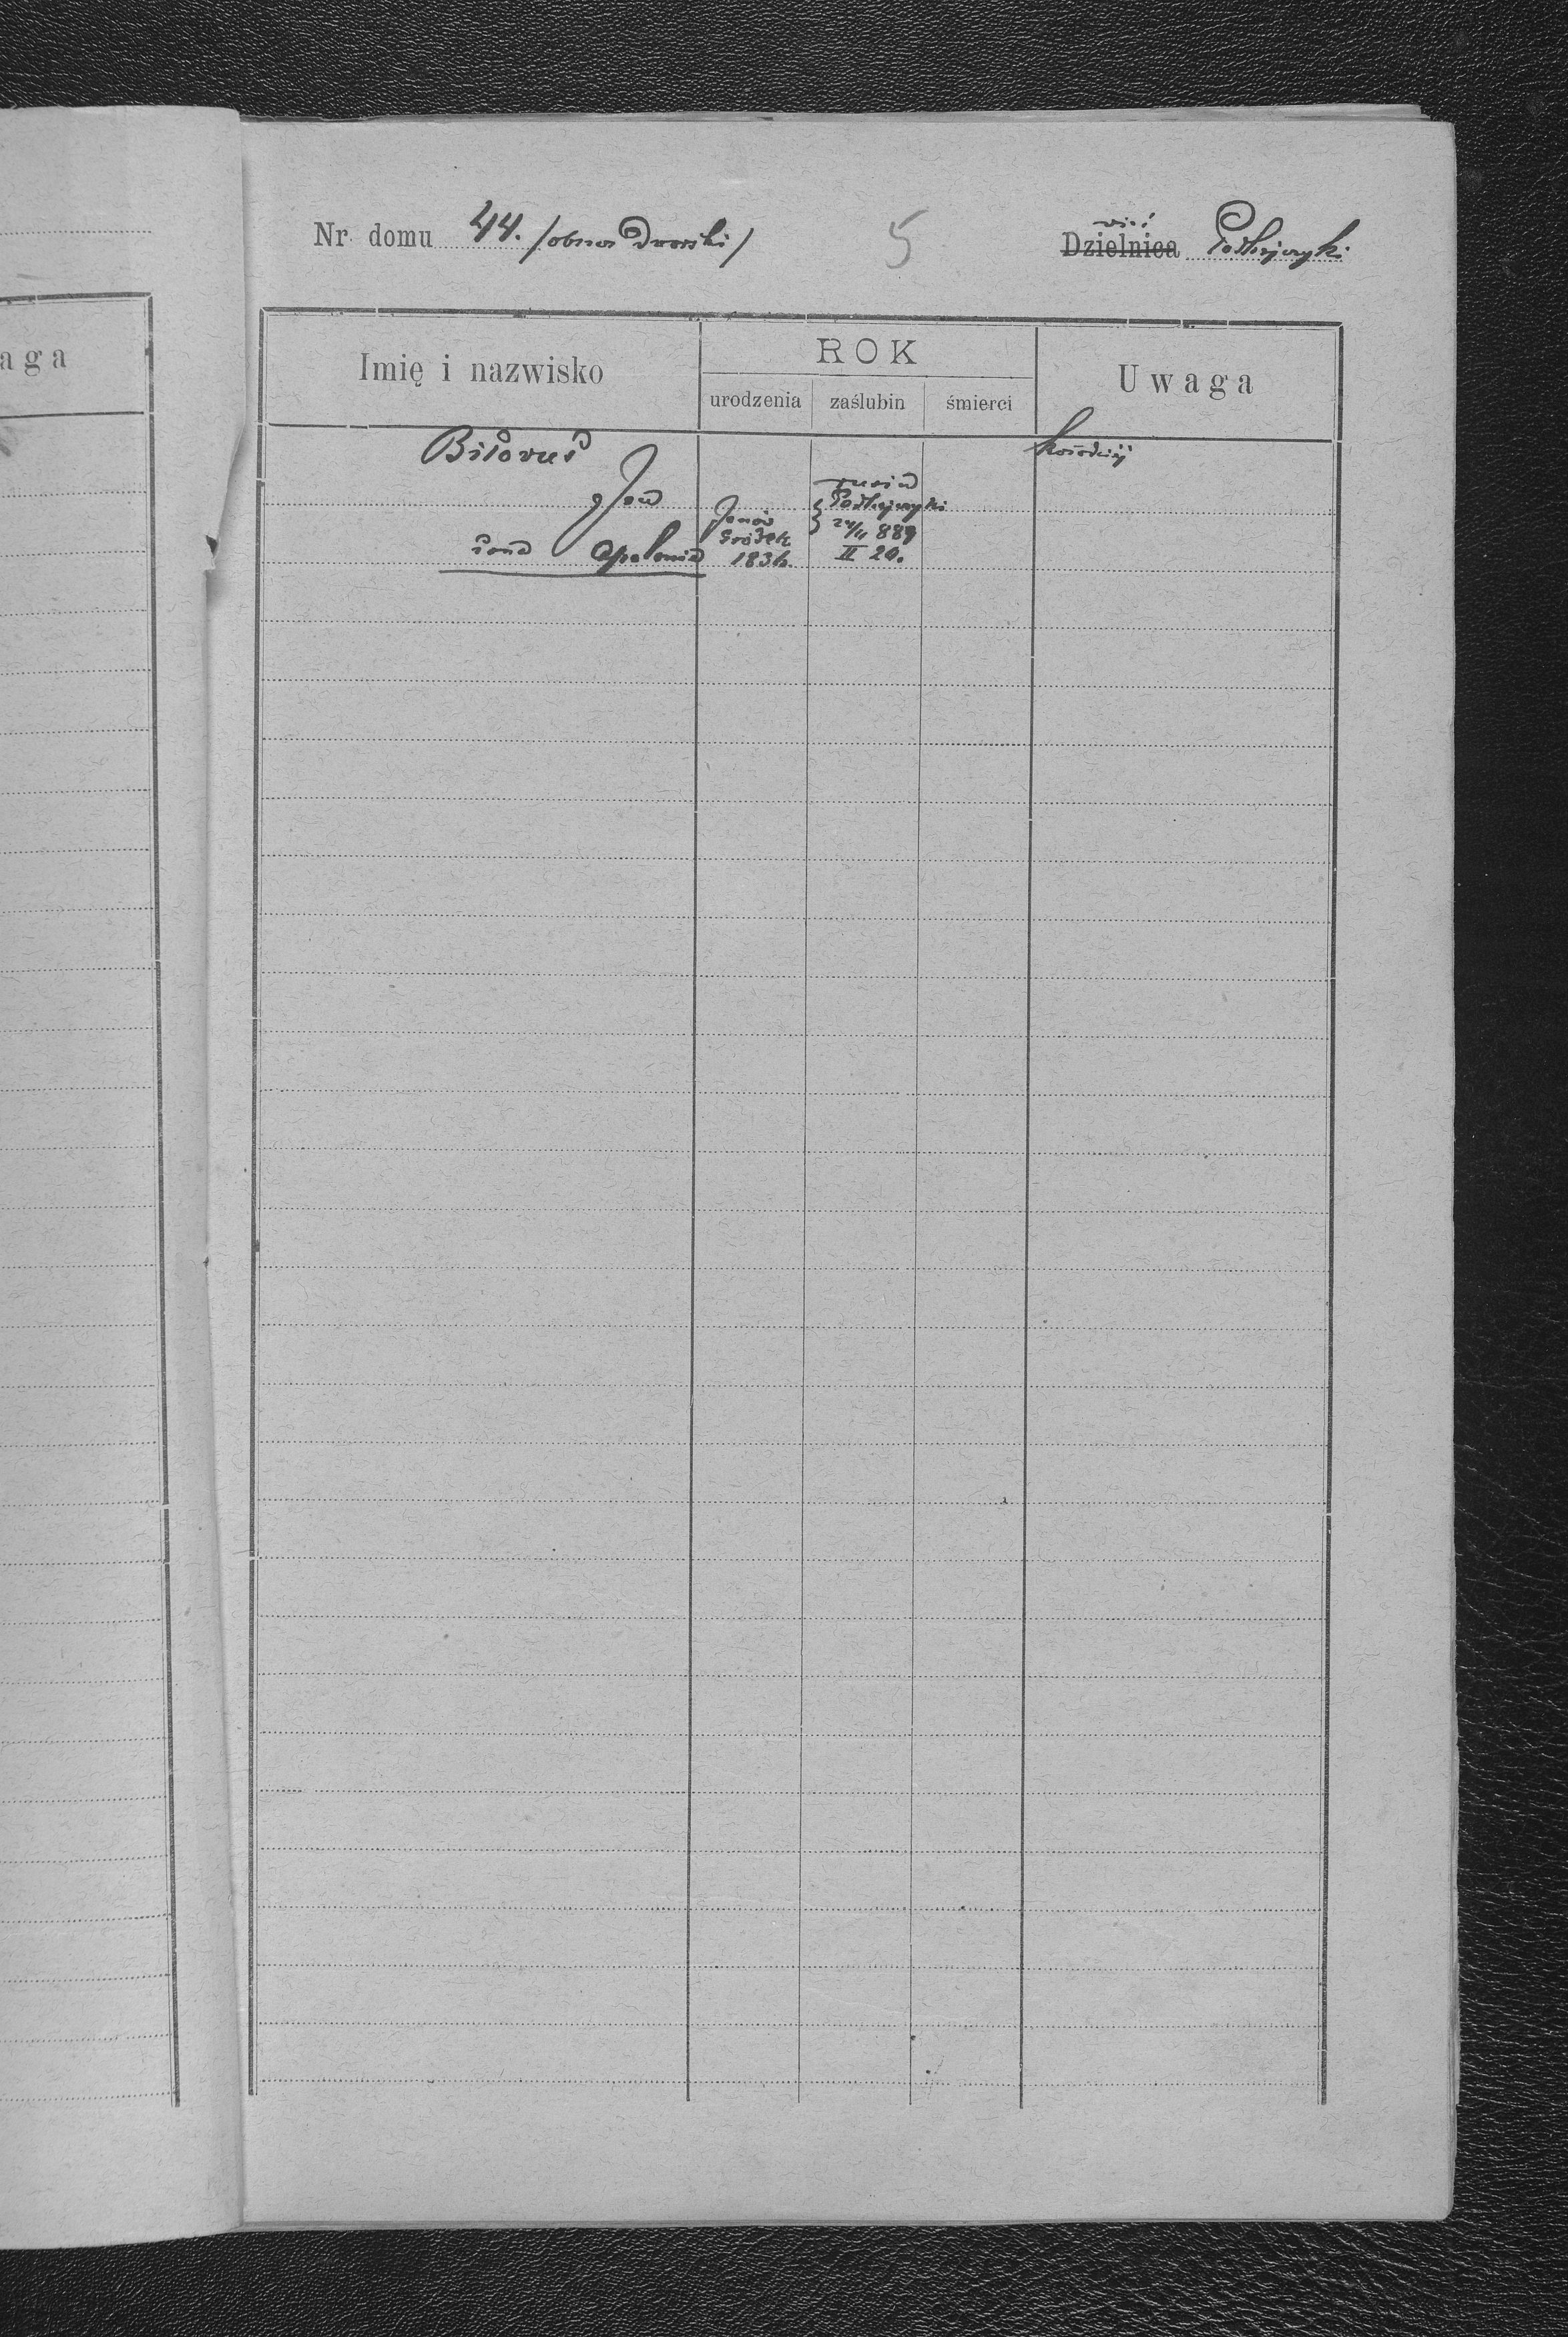 aga
Nr. domu 44. /obszar dworski/ 5 wieś Dzielnica Podhajczyki
Imię i nazwisko
ROK
urodzenia zaślubin śmierci
Uwaga
Biłorus kołodziej
Jan
Podhajczyki
Janów
24/4 889
Gródek
żona Apolonia 183 II 20.